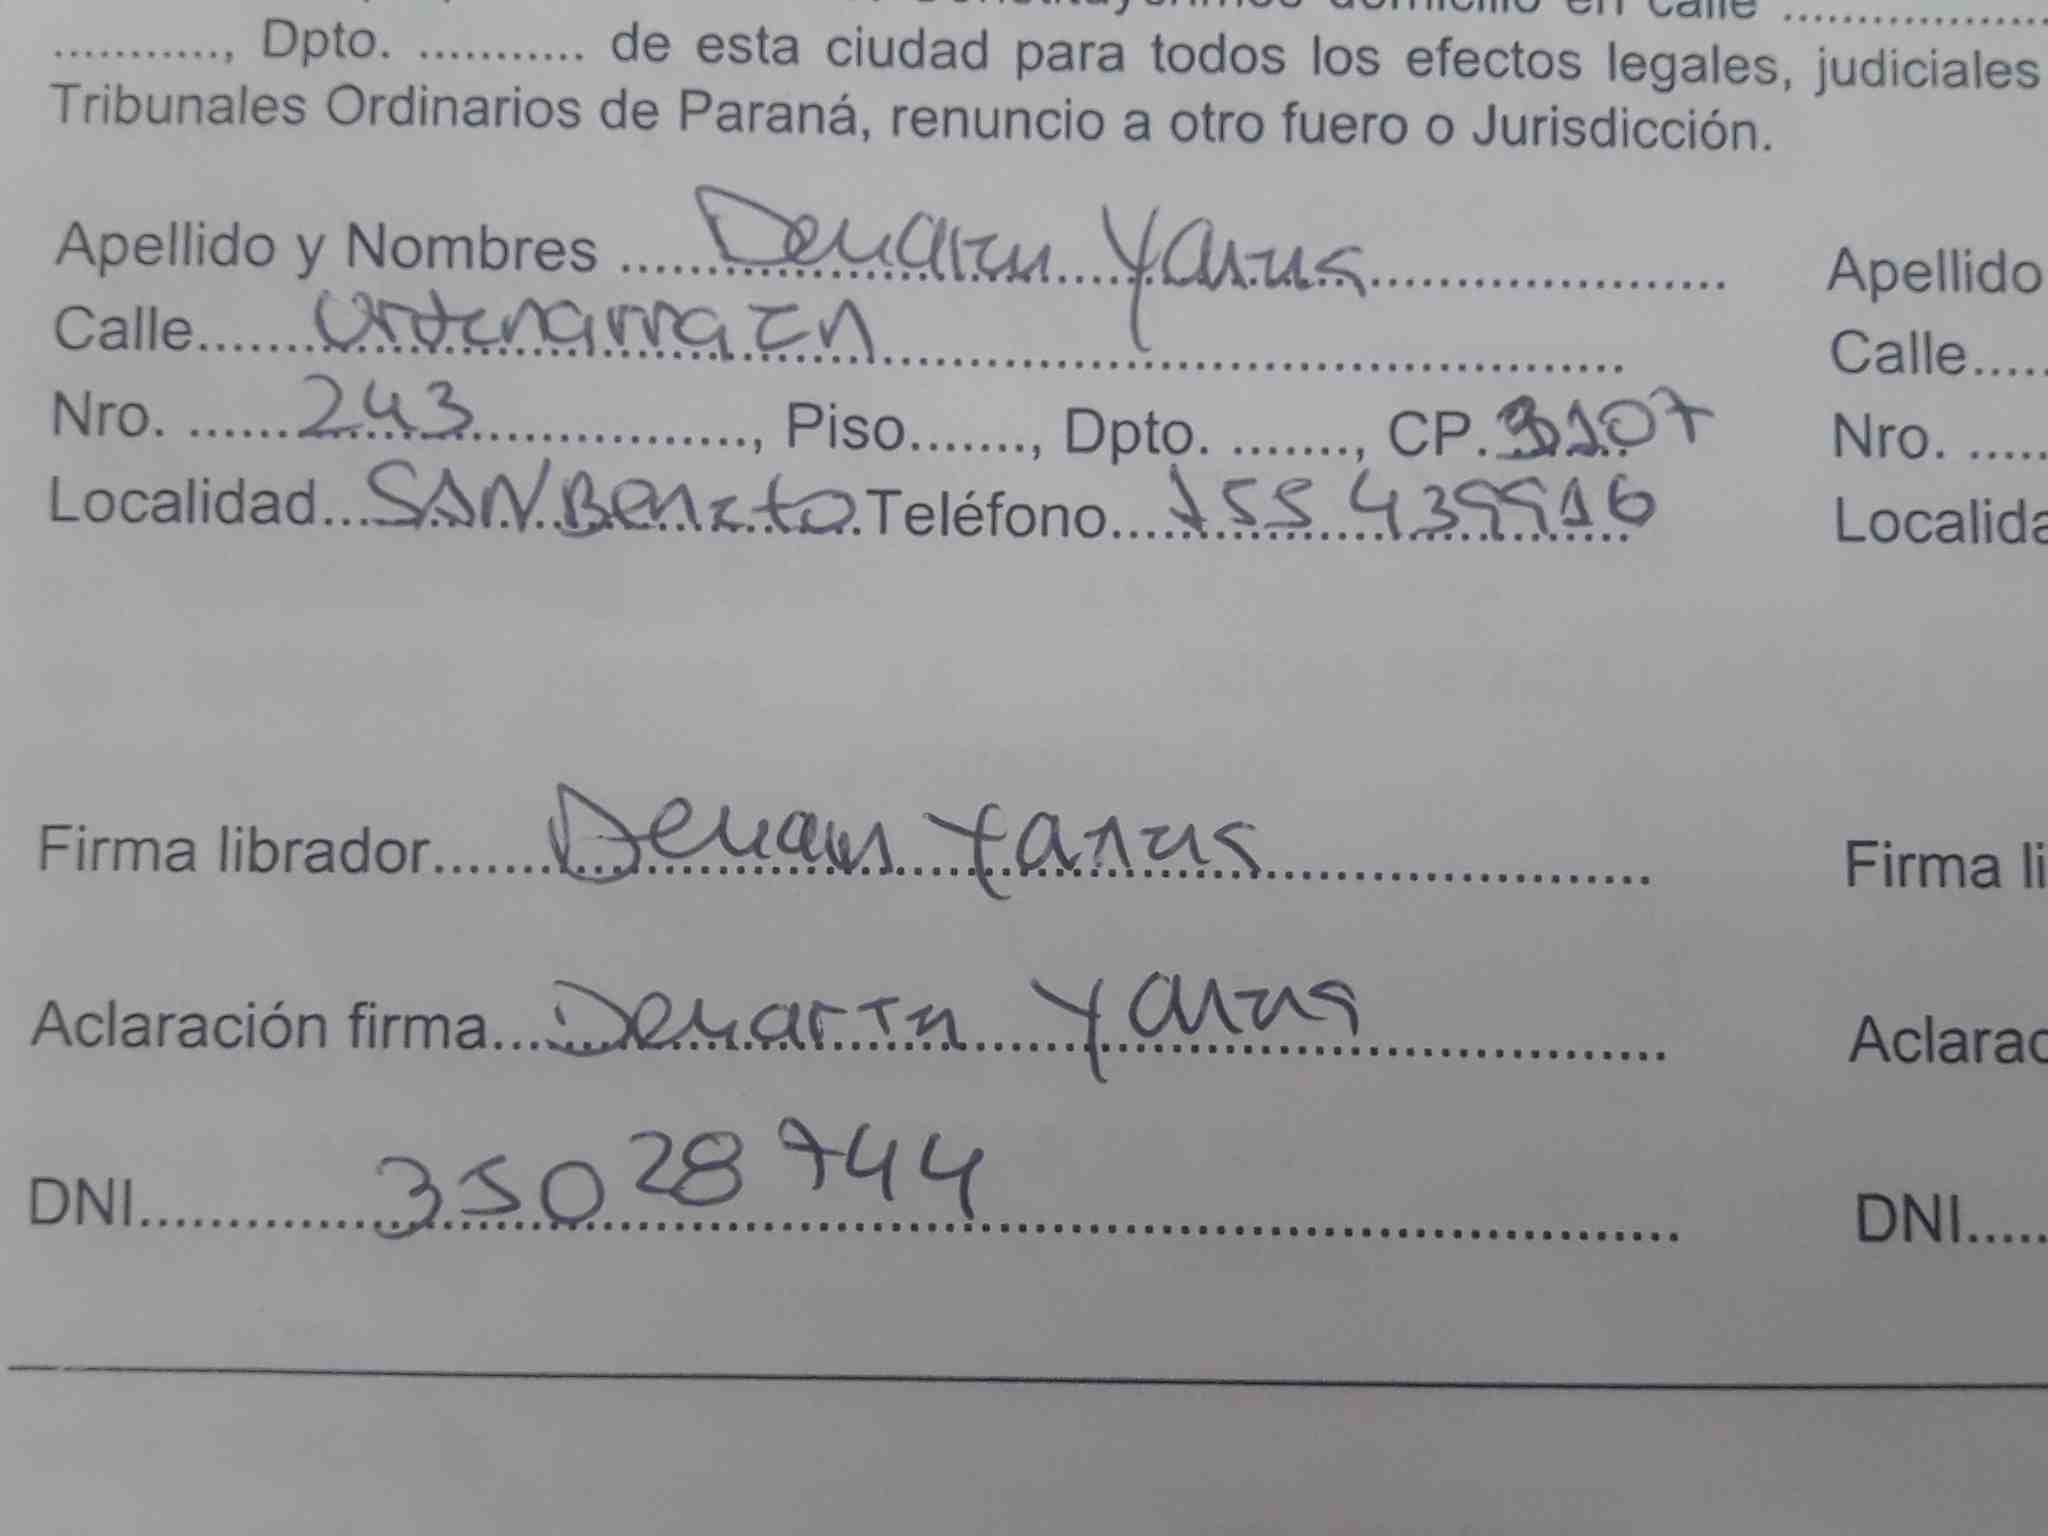 Constituyerimos domicilio en calle ....................
............, Dpto. ............ de esta ciudad para todos los efectos legales, judiciales
Tribunales Ordinarios de Paraná, renuncio a otro fuero o Jurisdicción.
Apellido y Nombres ...... Demartin Yanina ...... Apellido
Calle...... ...... Calle.....
Nro. ...... 243 ......, Piso......., Dpto. ........, CP. 3107 Nro. .....
Localidad... SAN Benito Teléfono.... 155 439916 Localida
Firma librador...... Yanina ...... Firma li
Aclaración firma.... Demartin Yanina ...... Aclarac
DNI...... 35028744 ...... DNI.....